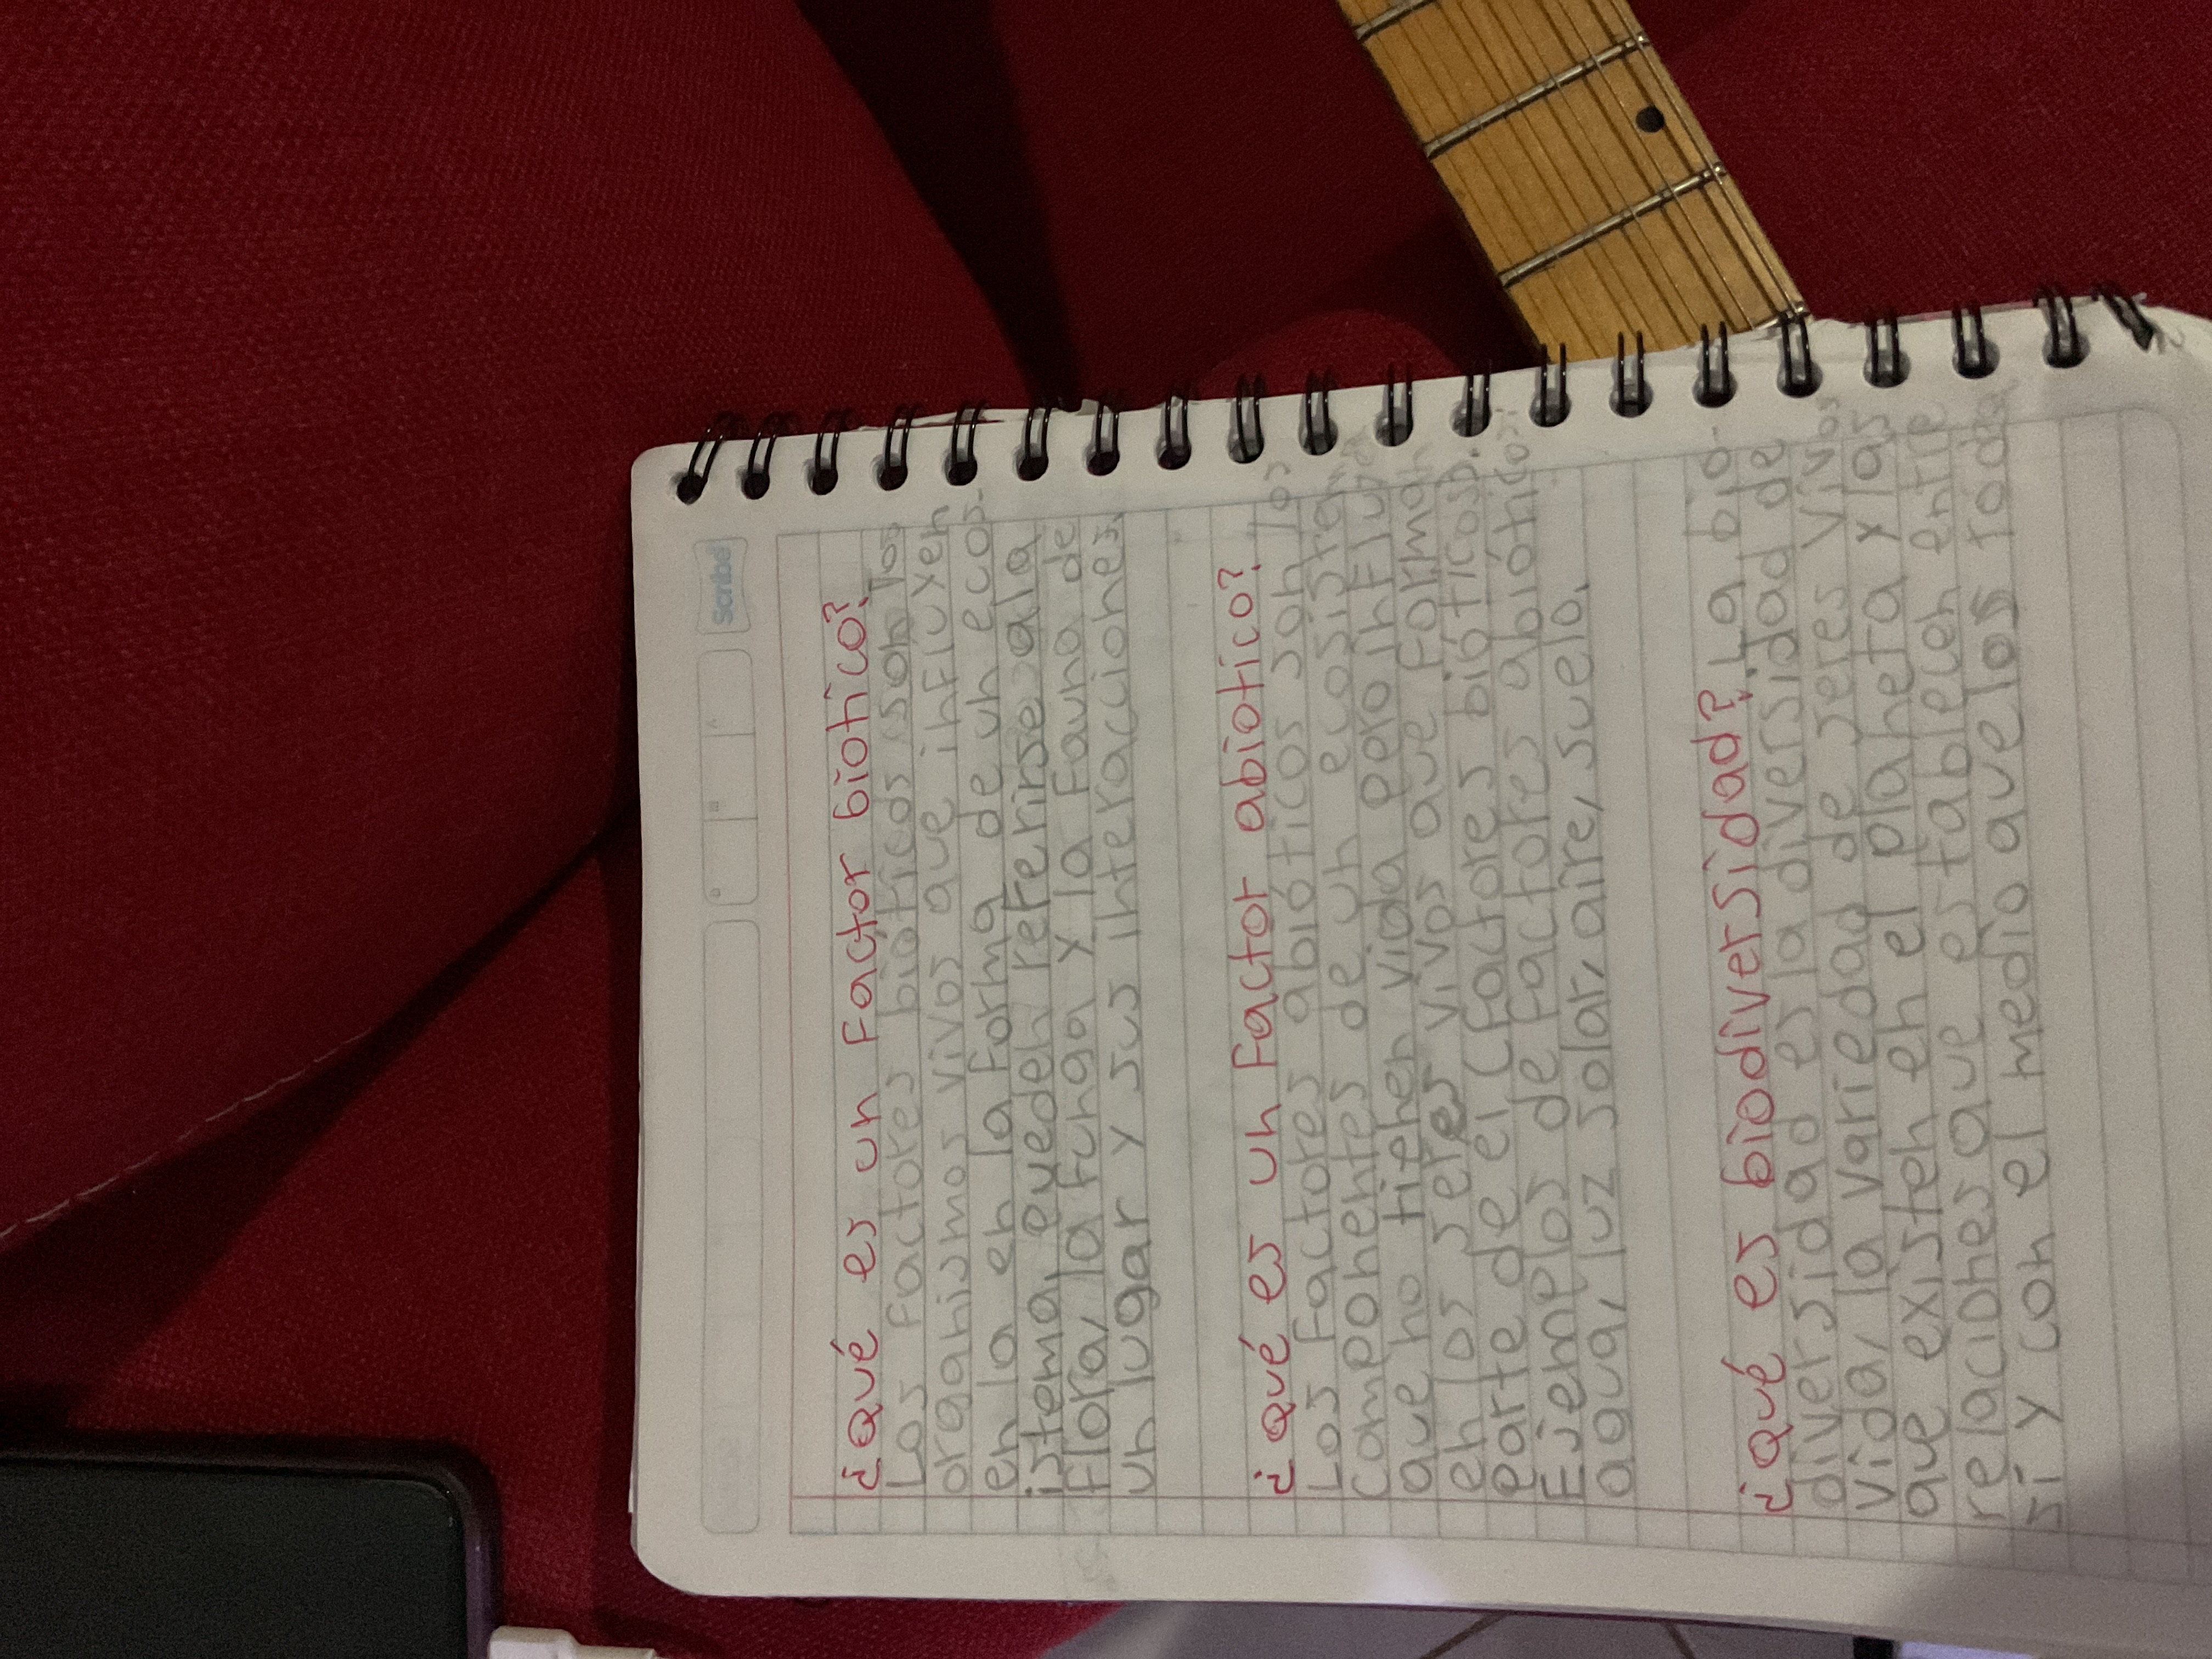 Scribe
D M A
¿Qué es un Factor biotico?
Los Factores bióticos son los
organismos vivos que influyen
en la en la Forma de un ecos-
istema, pueden referirse a la
Flora, la funga y la Fauna de
un lugar y sus interacciones.
¿Qué es un Factor abiotico?
Los Factores abióticos son los
componentes de un ecosistema
que no tienen vida pero influyen
en los seres vivos que Forman
parte de el (Factores bióticos).
Ejemplos de Factores abióticos:
agua, luz solar, aire, suelo.
¿Qué es biodiversidad? La bio-
diversidad es la diversidad de
vida, la variedad de seres vivos
que existen en el planeta y las
relaciones que establecen entre
sí y con el medio que los rodea